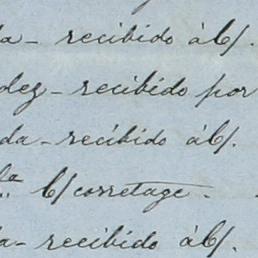 da - recibido á b/.
dez - recibido por
da - recibido á b/.
b/corretage.
da - recibido á b/.